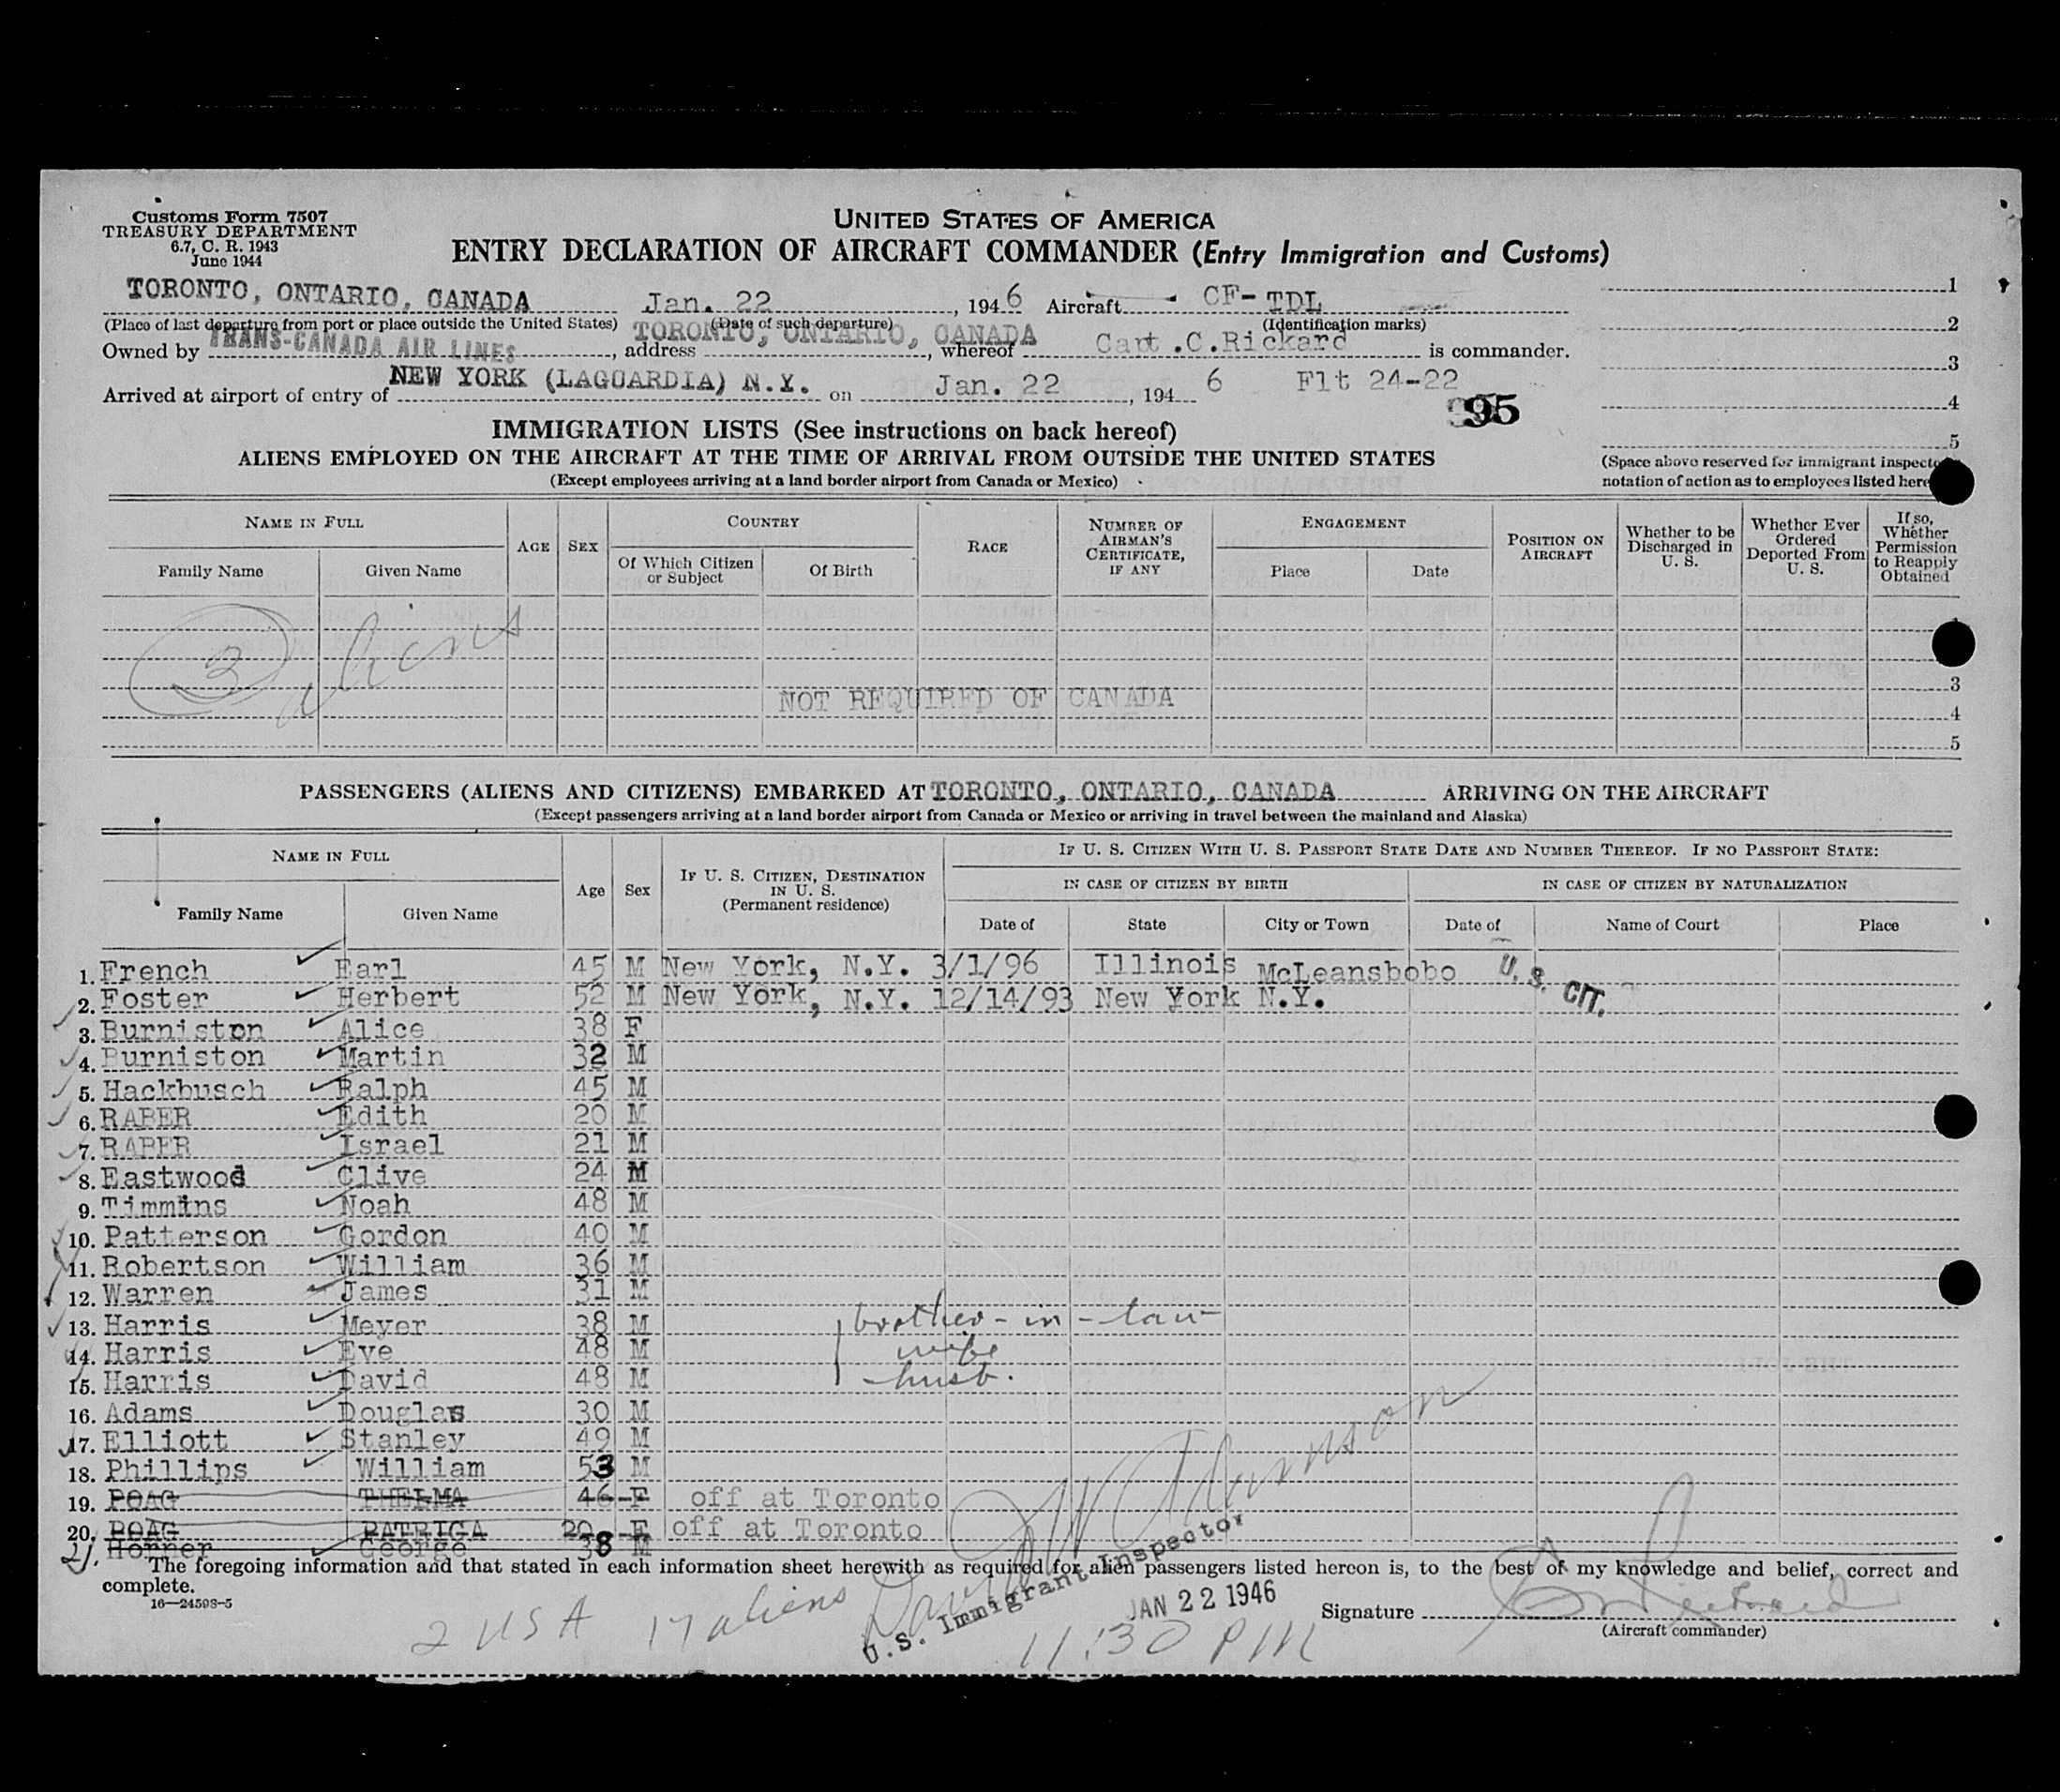 Customs Form 7507
TREASURY DEPARTMENT
6.7, C. R. 1943
June 1944
UNITED STATES OF AMERICA
ENTRY DECLARATION OF AIRCRAFT COMMANDER (Entry Immigration and Customs)
TORONTO, ONTARIO, CANADA Jan. 22, 1946 Aircraft CF-TDL
(Place of last departure from port or place outside the United States) (Date of such departure) (Identification marks)
Owned by TRANS-CANADA AIR LINES, address TORONTO, ONTARIO, CANADA, whereof Capt .C.Rickard is commander.
Arrived at airport of entry of NEW YORK (LAGUARDIA) N.Y. on Jan. 22, 1946 Flt 24-22
95
1
2
3
4
5
(Space above reserved for immigrant inspector's
notation of action as to employees listed here
IMMIGRATION LISTS (See instructions on back hereof)
ALIENS EMPLOYED ON THE AIRCRAFT AT THE TIME OF ARRIVAL FROM OUTSIDE THE UNITED STATES
(Except employees arriving at a land border airport from Canada or Mexico)
NAME IN FULL
Family Name
Given Name
AGE
SEX
COUNTRY
Of Which Citizen or Subject
Of Birth
RACE
NUMBER OF AIRMAN'S CERTIFICATE, IF ANY
ENGAGEMENT
Place
Date
POSITION ON AIRCRAFT
Whether to be Discharged in U. S.
Whether Ever Ordered Deported From U. S.
If so, Whether Permission to Reapply Obtained
3 aliens
NOT REQUIRED OF CANADA
3
4
5
PASSENGERS (ALIENS AND CITIZENS) EMBARKED AT TORONTO, ONTARIO, CANADA ARRIVING ON THE AIRCRAFT
(Except passengers arriving at a land border airport from Canada or Mexico or arriving in travel between the mainland and Alaska)
NAME IN FULL
Family Name
Given Name
Age
Sex
IF U. S. CITIZEN, DESTINATION IN U. S. (Permanent residence)
IF U. S. CITIZEN WITH U. S. PASSPORT STATE DATE AND NUMBER THEREOF. IF NO PASSPORT STATE:
IN CASE OF CITIZEN BY BIRTH
IN CASE OF CITIZEN BY NATURALIZATION
Date of
State
City or Town
Date of
Name of Court
Place
1. French Earl 45 M New York, N.Y. 3/1/96 Illinois McLeansbobo U. S. CIT.
2. Foster Herbert 52 M New York, N.Y. 12/14/93 New York N.Y.
3. Burniston Alice 38 F
4. Burniston Martin 32 M
5. Hackbusch Ralph 45 M
6. RABER Edith 20 M
7. RABER Israel 21 M
8. Eastwood Clive 24 M
9. Timmins Noah 48 M
10. Patterson Gordon 40 M
11. Robertson William 36 M
12. Warren James 31 M
13. Harris Meyer 38 M brother-in-law
14. Harris Eve 48 M wife
15. Harris David 48 M husb.
16. Adams Douglas 30 M
17. Elliott Stanley 49 M
18. Phillips William 53 M
19. POAG THELMA 46 F off at Toronto
20. POAG PATRICA 20 F off at Toronto
21. Horner George 38 M
The foregoing information and that stated in each information sheet herewith as required for alien passengers listed hereon is, to the best of my knowledge and belief, correct and
complete.
16—24598-5
2 USA 17 aliens
U.S. Immigrant Inspector
JAN 22 1946
11:30 PM
Signature
(Aircraft commander)